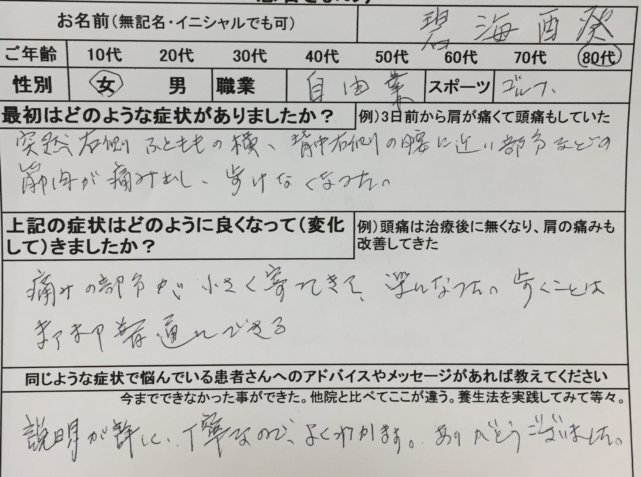 お名前(無記名・イニシャルでも可) 碧海酉癸
ご年齢 10代 20代 30代 40代 50代 60代 70代 80代
性別 女 男 職業 自由業 スポーツ ゴルフ
最初はどのような症状がありましたか? 例)3日前から肩が痛くて頭痛もしていた
突然右側ふとももの横、背中右側の腰に近い部分などの
筋肉が痛み出し、歩けなくなった。
上記の症状はどのように良くなって(変化 例)頭痛は治療後に無くなり、肩の痛みも
して)きましたか? 改善してきた
痛みの部分が小さく寄ってきて、楽になった。歩くことは
まあまあ普通にできる
同じような症状で悩んでいる患者さんへのアドバイスやメッセージがあれば教えてください
今までできなかった事ができた。他院と比べてここが違う。養生法を実践してみて等々。
説明が詳しい、丁寧なので、よくわかります。ありがとうございました。